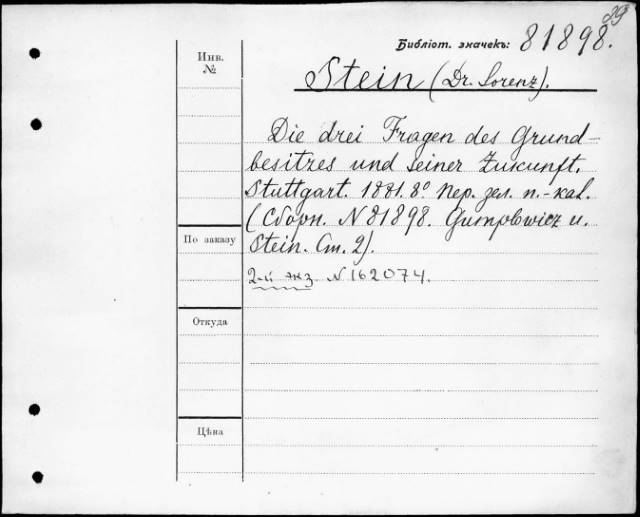 89
Библіот. значекъ: 81898.
Инв.
№
Stein (Dr. Lorenz).
Die drei Fragen des Grund-
besitzes und seiner Zukunft.
Stuttgart. 1881. 8º. Пер. зел. п.-кал.
(Сборн. N 81898. Gumplowicz u.
Stein. Ст. 2).
По заказу
2-й экз. N 162074.
Откуда
Цѣна